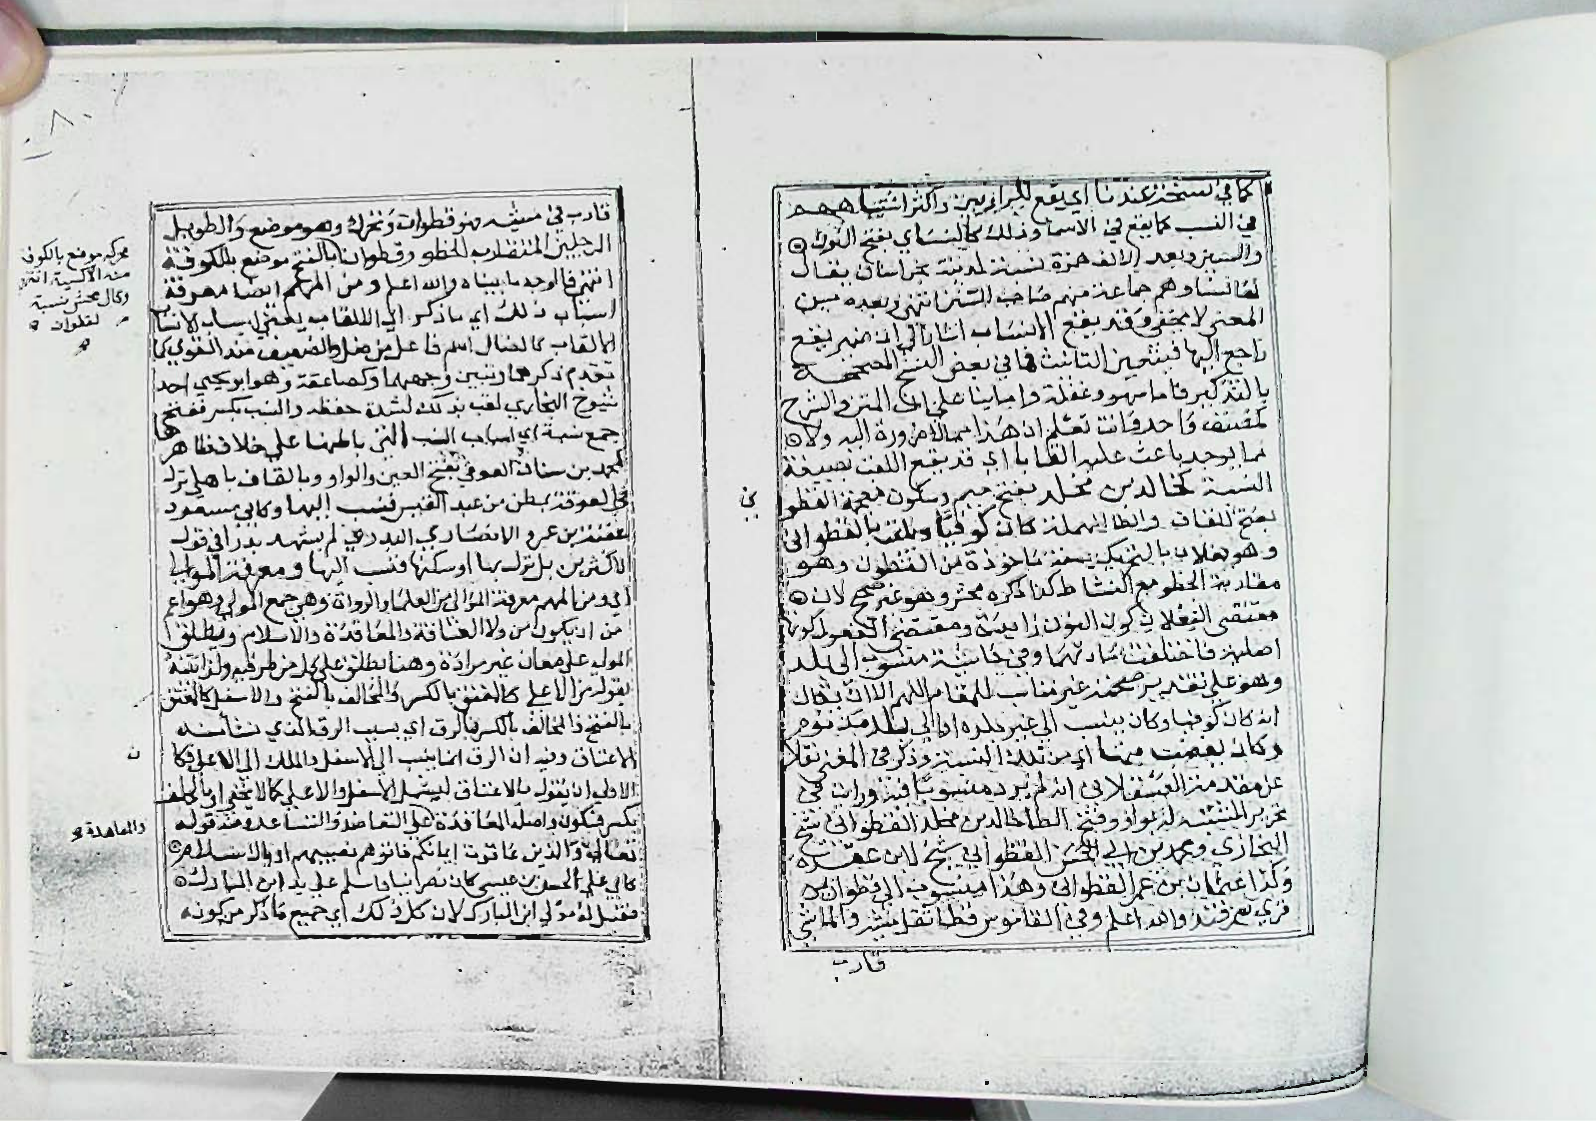 كما في نسختنا أي يقع للبرازيين وأكثر اشتباههم
في النسب كما يقع في الاسماء وذلك كالنسائي بفتح النون
والسين وبعد الالف همزة نسبة لمدينة بخراسان يقال
لها نسا وهم جماعة منهم صاحب السنن انتهى وبعده
المعنى لا يخفى وقد يقع الانساب اشار الى ان ضمير يقع
راجع اليها فيتعين التانيث فما في بعض النسخ المصححة
بالتذكير فاما سهو وغفلة واما بنا على ان المتن والشرح
كمصنف واحد وانت تعلم ان هذا مما لا ضرورة اليه ولا
مما يوجد باعث عليه القابا اي قد يقع اللقب بصيغة
النسبة كخالد بن مخلد بفتح ميم وسكون معجمة القطو
بفتح القاف والطا المهملة كان كوفيا ويلقب بالقطواني
وهو فعلان بالتحريك ماخوذة من القطون وهو
مقاربة الخطو مع النشاط كذا ذكره محشي وهو غير صحيح لان
مقتضى الفعلان كون النون زايدة ومقتضى الفعول كونها
اصلية فاختلفت مادتهما وفي حاشية منسوب الى بلد
وهو على تقدير صحته غير مناسب للمقام اللهم الا ان يقال
انه كان كوفيا وكان ينسب الى غير بلده او الى بلد
وكان يغضب منها اي من تلك النسبة وذكر في المغني نقلا
عن مقدمة العسقلاني انه لم يرد منسوبا فيه ورايت في
تحرير المشتبه له بواو وفتح الطا خالد بن مخلد القطواني شيخ
البخاري ومحمد بن ابي الحسن القطواني شيخ لابن عقدة
وكذا عثمان بن عمر القطواني وهذا منسوب الى قطوان من
قرى سمرقند والله اعلم وفي القاموس قطا ثقل مشيه والماشي
قارب
قارب في مشيه فهو قطوان ويحرك وهو موضع والطويل
الرجلين المتقارب الخطو وقطوان بالفتح موضع بالكوفة
انتهى فالوجه ما بيناه والله اعلم ومن المهم ايضا معرفة
اسباب ذلك اي ما ذكر اي الالقاب يعني اسباب الانساب
الالقاب كالضال اسم فاعل من ضل والضعيف ضد القوي كما
تقدم ذكرهما وتبين وجههما وكصاعقة وهو ابو يحيى احد
شيوخ البخاري لقب بذلك لشدة حفظه والنسب بكسر ففتح
جمع نسبة اي اسباب النسب التي باطنها على خلاف ظاهرها
كمحمد بن سنان العوقي بفتح العين والواو وبالقاف باهلي نزل
في العوقة بطن من عبد القيس فنسب اليها وكابي مسعود
عقبة بن عمرو الانصاري البدري لم يشهد بدرا في قول
الاكثرين بل نزل بها او سكنها فنسب اليها ومعرفة الموالي
اي ومن المهم معرفة الموالي من العلماء والرواة وهي جمع المولى وهو اعم
من ان يكون من ولا العتاقة والمعاقدة والاسلام ويطلق
المولى على معان غير مرادة وهنا يطلق على كل من طرفيه ولذا بينه
بقوله من الاعلى كالمعتق بالكسر والمحالف بالفتح والاسفل كالمعتق
بالفتح والمحالف بالكسر بالرق اي بسبب الرق الذي نشا منه
الاعتاق وفيه ان الرق انما ينسب الى الاسفل والملك الى الاعلى فكا
الاولى ان يقول بالاعتاق ليشمل الاسفل والاعلى كما لا يخفى او بالحلف
بكسر فسكون واصله المعاقدة على التعاضد والتساعد ومنه قوله
تعالى والذين عاقدت ايمانكم فاتوهم نصيبهم او بالاسلام
كابي علي الحسن بن عيسى كان نصرانيا فاسلم على يد ابن المبارك
فقيل له مولى ابن المبارك لان كل ذلك اي جميع ما ذكر من كونه
محركة موضع بالكوفة
منه الاكسية انتهى
وقال محشي نسبة
لقطوان
والمعاهدة